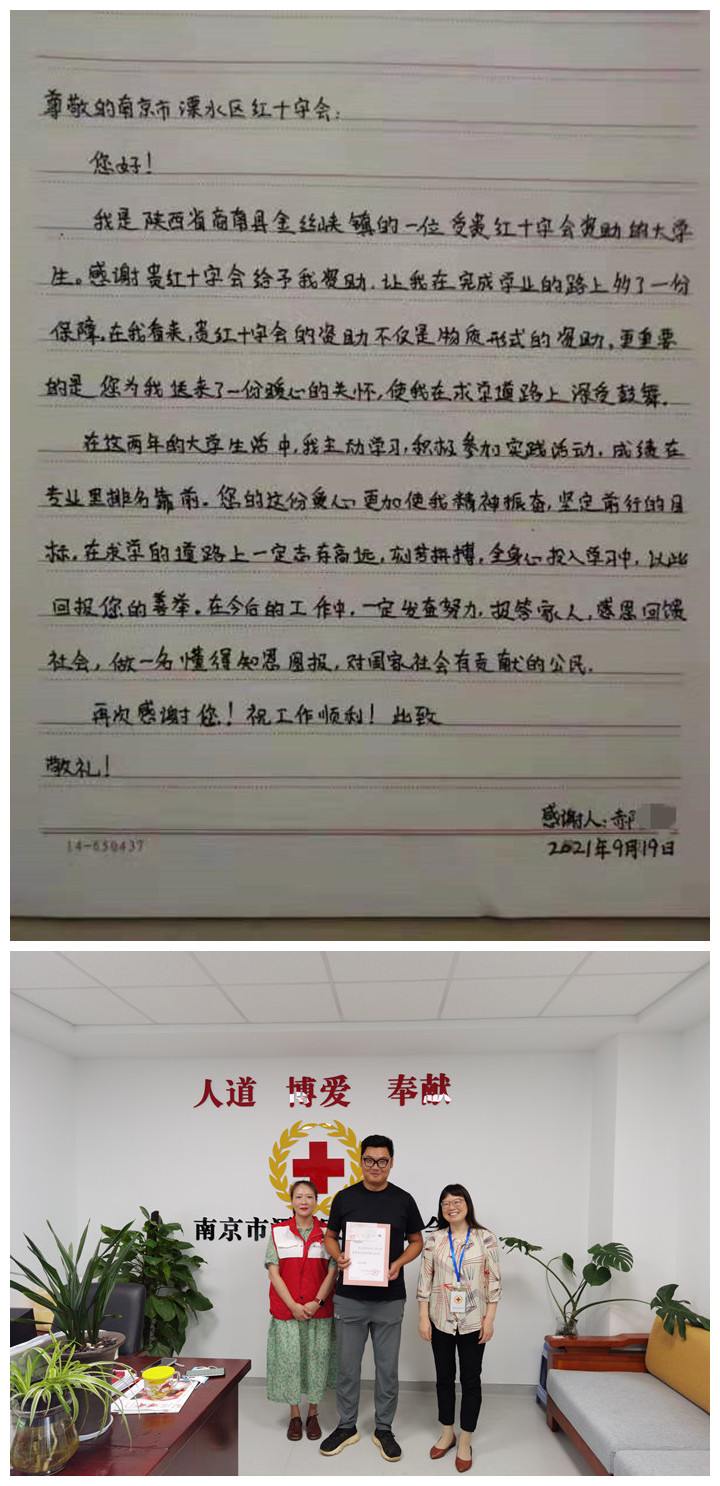 尊敬的南京市溧水区红十字会:
您好!
我是陕西省商南县金丝峡镇的一位受贵红十字会资助的大学
生。感谢贵红十字会给予我资助,让我在完成学业的路上多了一份
保障。在我看来,贵红十字会的资助不仅是物质形式的资助,更重要
的是您为我送来了一份暖心的关怀,使我在求学道路上深受鼓舞。
在这两年的大学生活中,我主动学习,积极参加实践活动,成绩在
专业里排名靠前。您的这份爱心更加使我精神振奋,坚定前行的目
标。在求学的道路上一定志存高远,刻苦拼搏,全身心投入学习中,以此
回报您的善举。在今后的工作中,一定发奋努力,报答家人,感恩回馈
社会,做一名懂得知恩图报,对国家社会有贡献的公民。
再次感谢您!祝工作顺利!此致
敬礼!
感谢人:郝
2021年9月19日
14-650437
人道 博爱 奉献
南京市溧 会